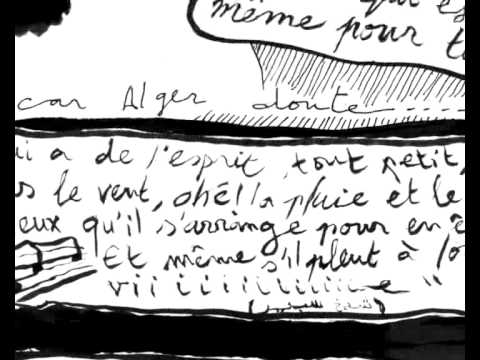 même pour t
car Alger doute.......
i a de l'esprit, tout petit,
s le vent, ohé! la pluie et le
eux qu'il s'arrange pour en ê
Et même s'il pleut à l'o
vii iiiiiiiiiiie"